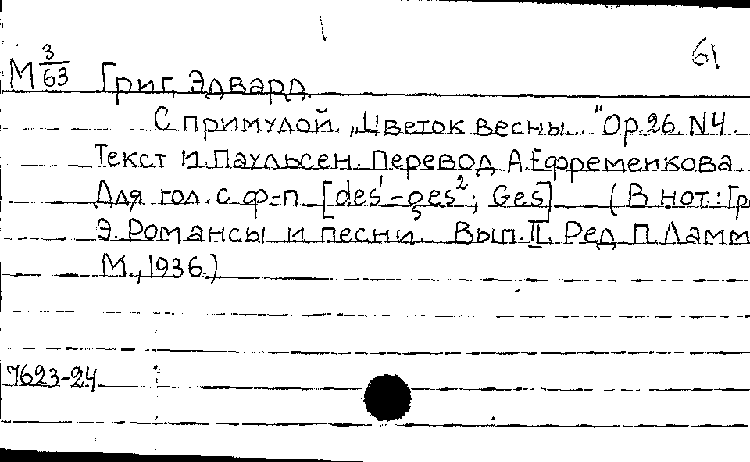 61
М 3/63 Григ, Эдвард
С примулой. „Цветок весны..." Ор.26. N4.
Текст И.Паульсен. Перевод А.Ефременкова.
Для гол. с ф-п. [des¹-ges²; Ges] (В нот.: Гр
Э. Романсы и песни. Вып.II. Ред. П.Ламм
М., 1936.)
7623-24